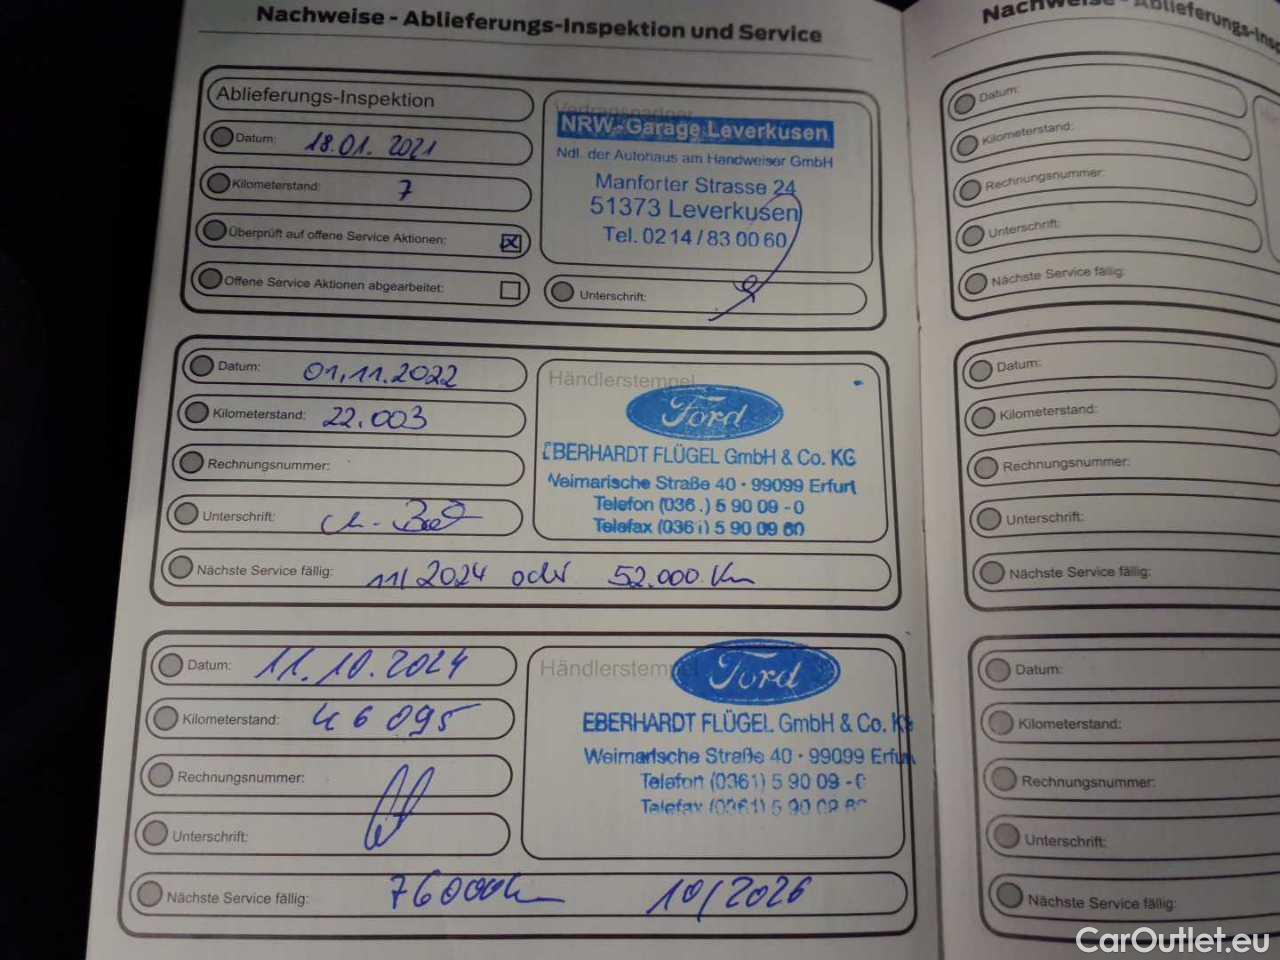 Nachweise - Ablieferungs-Inspektion und Service
Ablieferungs-Inspektion
Datum: 18.01.2021
Kilometerstand: 7
Überprüft auf offene Service Aktionen: ☒
Offene Service Aktionen abgearbeitet: ☐
Vertragspartner
NRW-Garage Leverkusen
Ndl. der Autohaus am Handweiser GmbH
Manforter Strasse 24
51373 Leverkusen
Tel. 0214/830060
Unterschrift:
Datum: 01.11.2022
Kilometerstand: 22.003
Rechnungsnummer:
Unterschrift:
Händlerstempel
Ford
EBERHARDT FLÜGEL GmbH & Co. KG
Weimarische Straße 40 · 99099 Erfurt
Telefon (036.) 5 90 09 - 0
Telefax (0361) 5 90 09 60
Nächste Service fällig: 11/2024 oder 52.000 Km
Datum: 11.10.2024
Kilometerstand: 46095
Rechnungsnummer:
Unterschrift:
Händlerstempel
Ford
EBERHARDT FLÜGEL GmbH & Co. K
Weimarische Straße 40 · 99099 Erfur
Telefon (0361) 5 90 09 - 0
Telefax (0361) 5 90 09 60
Nächste Service fällig: 76000km 10/2026
Nachweise - Ablieferungs-Insp
Datum:
Kilometerstand:
Rechnungsnummer:
Unterschrift:
Nächste Service fällig:
Datum:
Kilometerstand:
Rechnungsnummer:
Unterschrift:
Nächste Service fällig:
Datum:
Kilometerstand:
Rechnungsnummer:
Unterschrift:
Nächste Service fällig:
CarOutlet.eu